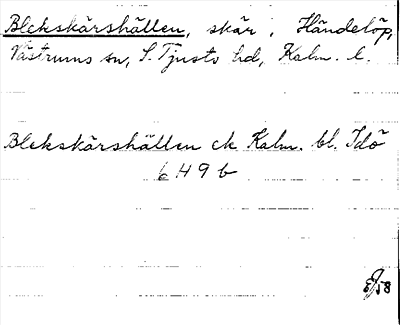 Blekskärshällen, skär, Händelöp,
Västrums sn, S. Tjusts hd, Kalm. l.
Blekskärshällen ek Kalm. bl. Idö
6 H 9 b
58